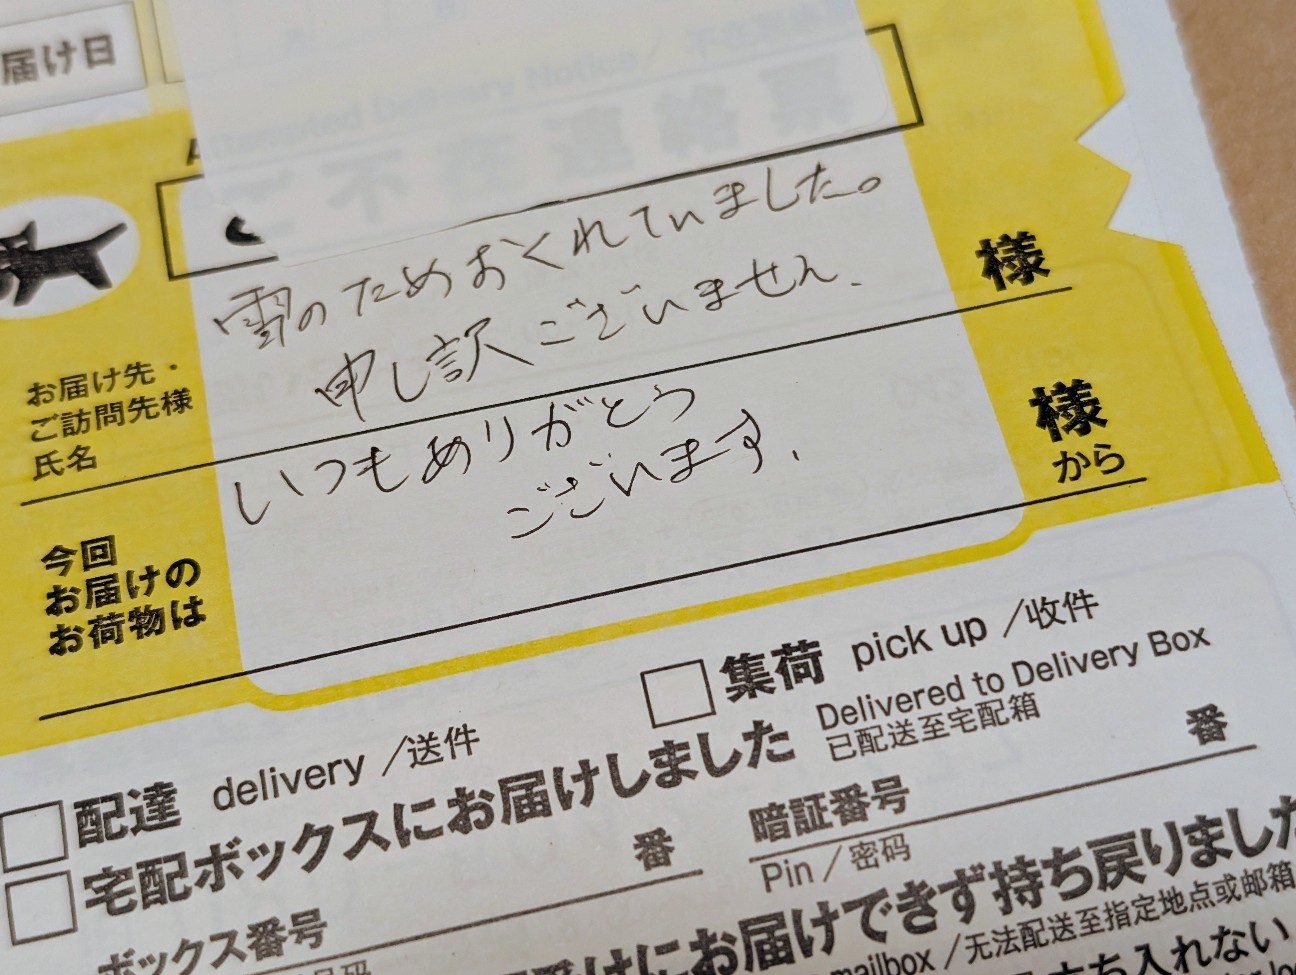 届け日
Attempted Delivery Notice／
ご不在連絡票
雪のためおくれていました。
申し訳ございません.
いつもありがとう
ございます.
お届け先・
ご訪問先様
氏名
様
今回
お届けの
お荷物は
様
から
配達 delivery／送件
集荷 pick up／收件
宅配ボックスにお届けしました
Delivered to Delivery Box
已配送至宅配箱
ボックス番号
番
暗証番号
Pin／密码
番
にお届けできず持ち戻りました
mailbox／无法配送至指定地点或邮箱
入れない